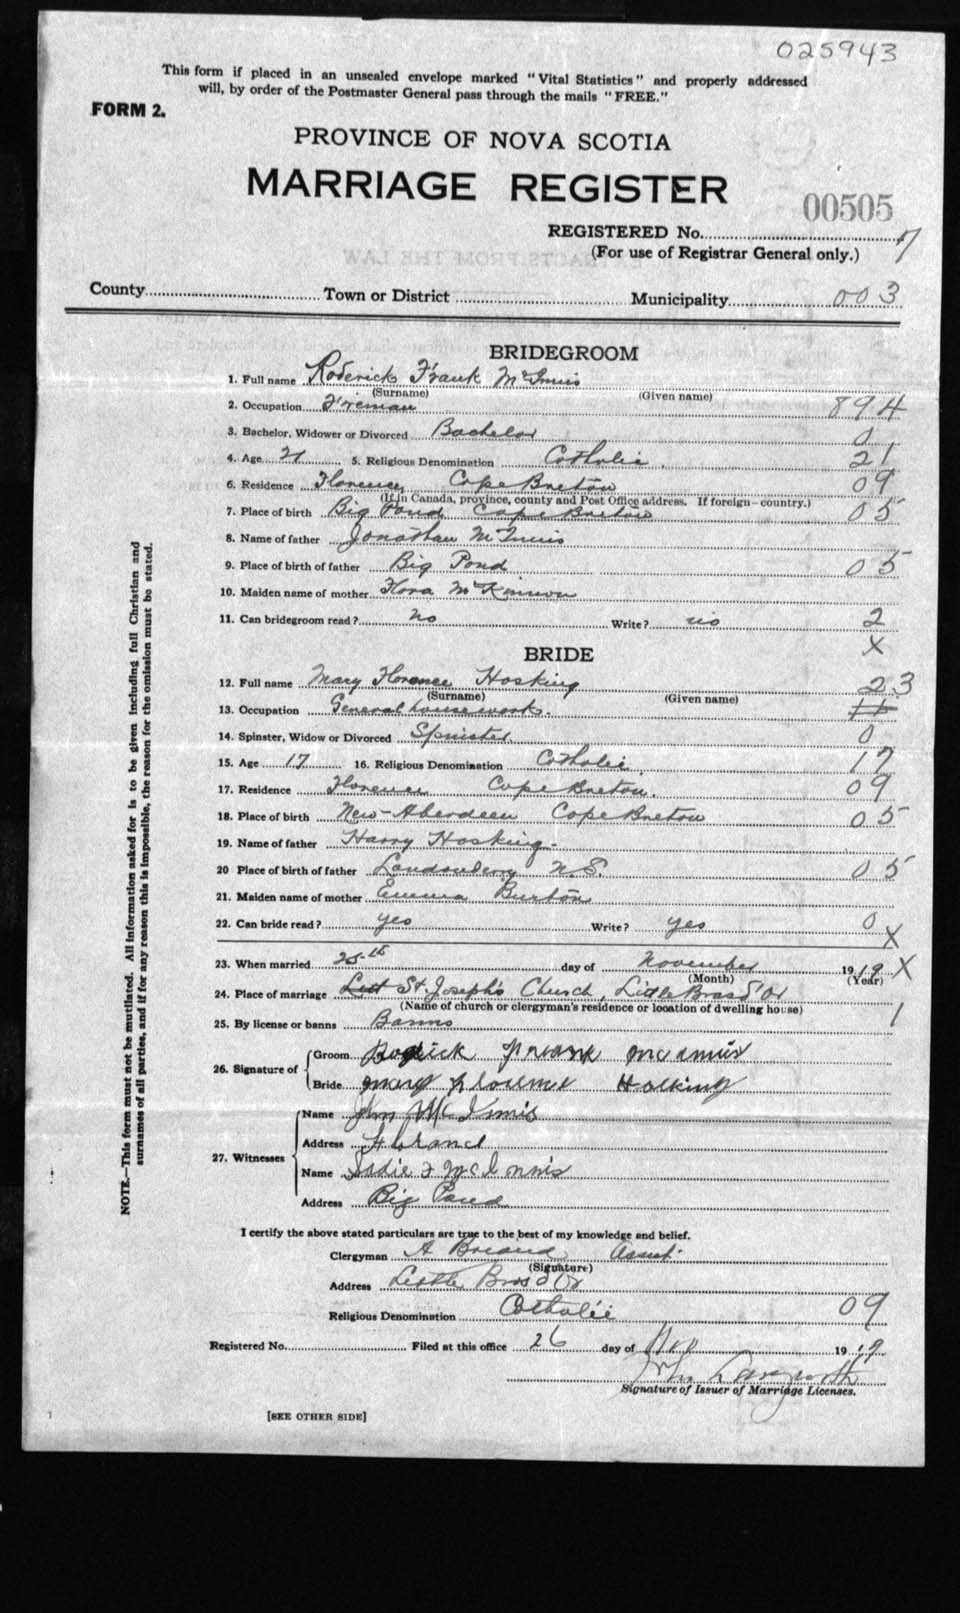 025943
This form if placed in an unsealed envelope marked "Vital Statistics" and properly addressed
will, by order of the Postmaster General pass through the mails "FREE."
FORM 2.
PROVINCE OF NOVA SCOTIA
MARRIAGE REGISTER
00505
REGISTERED No. 7
(For use of Registrar General only.)
County Town or District Municipality 003
BRIDEGROOM
1. Full name Roderick Frank McInnis
(Surname) (Given name)
2. Occupation Fireman 894
3. Bachelor, Widower or Divorced Bachelor 0
4. Age 21 5. Religious Denomination Catholic 21
6. Residence Florence Cape Breton 09
(If in Canada, province, county and Post Office address. If foreign—country.)
7. Place of birth Big Pond Cape Breton 05
8. Name of father Jonathan McInnis
9. Place of birth of father Big Pond 05
10. Maiden name of mother Flora McKinnon
11. Can bridegroom read? No Write? no 2
X
BRIDE
12. Full name Mary Florence Hosking 23
(Surname) (Given name)
13. Occupation General housework.
14. Spinster, Widow or Divorced Spinster 0
15. Age 17 16. Religious Denomination Catholic 17
17. Residence Florence Cape Breton. 09
18. Place of birth New-Aberdeen Cape Breton 05
19. Name of father Harry Hosking.
20 Place of birth of father Londonderry N.S. 05
21. Maiden name of mother Emma Burton
22. Can bride read? yes Write? yes 0
X
23. When married 25th day of November 1919 X
(Month) (Year)
24. Place of marriage St. Joseph's Church, Little Bras d'Or
(Name of church or clergyman's residence or location of dwelling house) 1
25. By license or banns Banns
26. Signature of Groom Frank McInnis
Bride Mary Florence Hosking
27. Witnesses Name John McInnis
Address Florance
Name Sadie F McInnis
Address Big Pond
I certify the above stated particulars are true to the best of my knowledge and belief.
Clergyman A Briand Assist.
(Signature)
Address Little Bras d'Or
Religious Denomination Catholic 09
Registered No. Filed at this office 26 day of Nov 1919
John
Signature of Issuer of Marriage Licenses.
[SEE OTHER SIDE]
NOTE.—This form must not be mutilated. All information asked for is to be given including full Christian and
surnames of all parties, and if for any reason this is impossible, the reason for the omission must be stated.